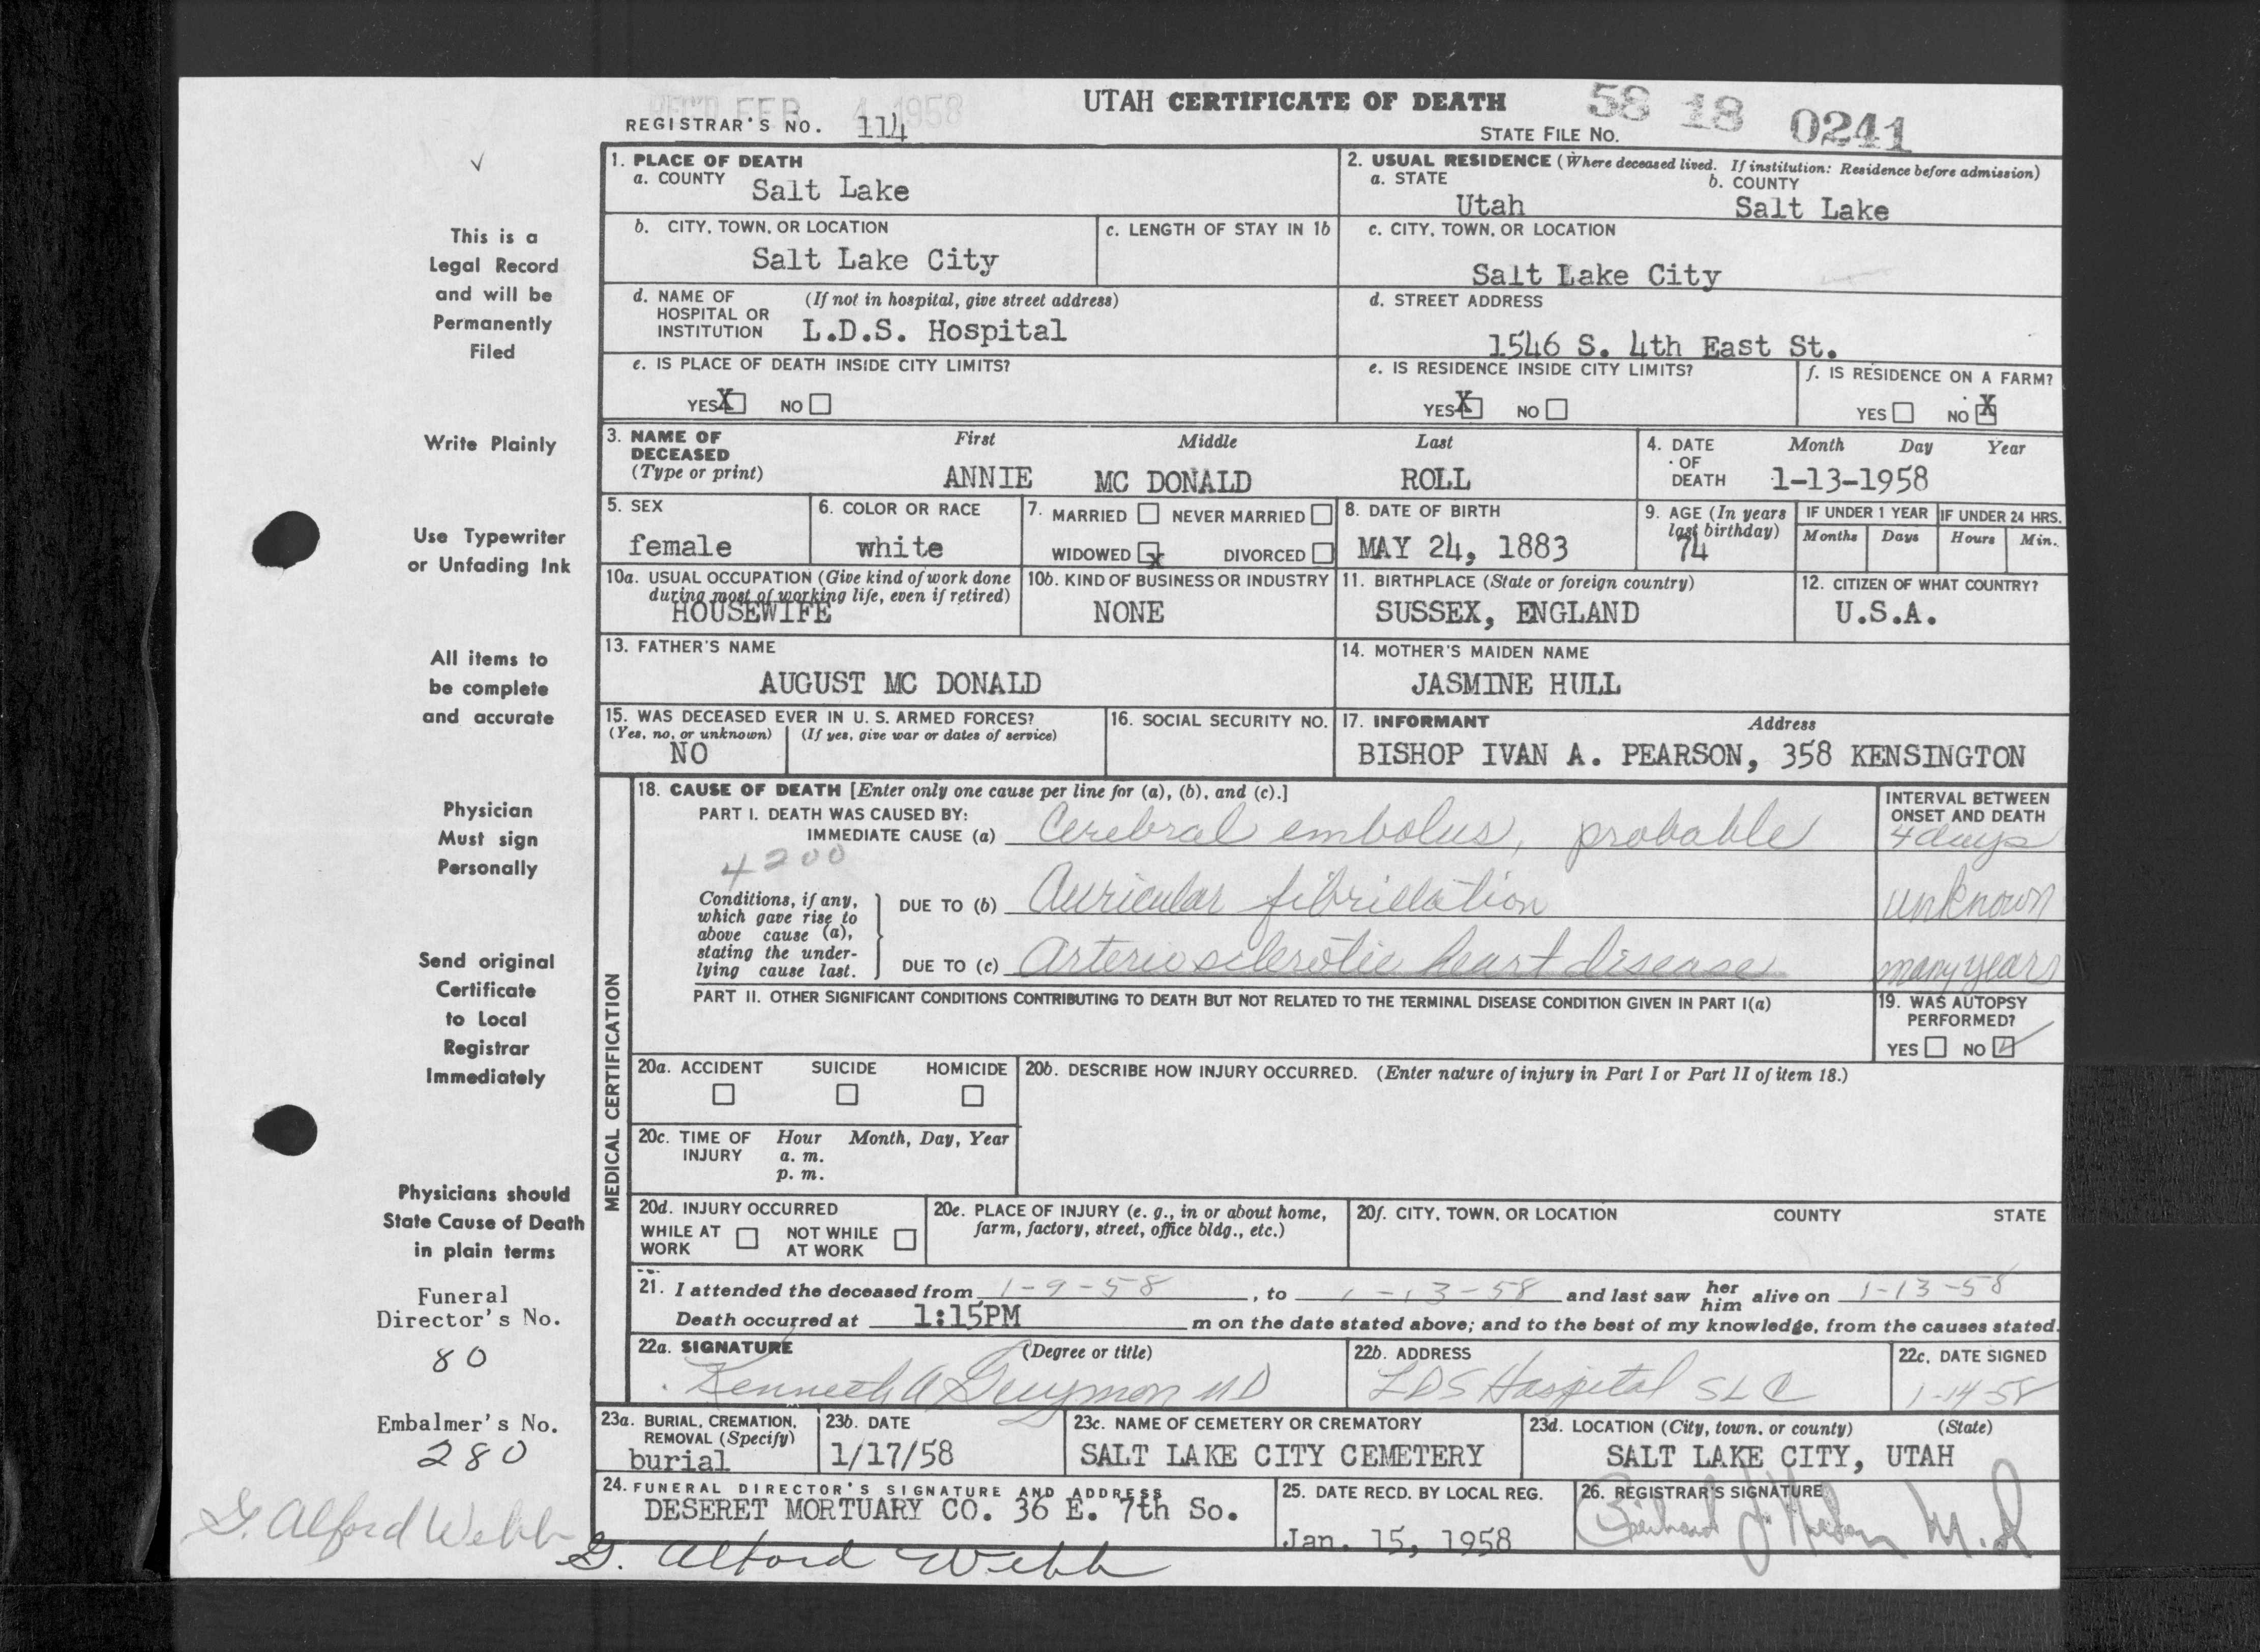 REC'D FEB 4 1958
UTAH CERTIFICATE OF DEATH
58 18 0241
REGISTRAR'S NO. 114
STATE FILE NO.
1. PLACE OF DEATH
a. COUNTY Salt Lake
2. USUAL RESIDENCE (Where deceased lived. If institution: Residence before admission)
a. STATE Utah
b. COUNTY Salt Lake
b. CITY, TOWN, OR LOCATION
Salt Lake City
c. LENGTH OF STAY IN 1b
c. CITY, TOWN, OR LOCATION
Salt Lake City
d. NAME OF HOSPITAL OR INSTITUTION
(If not in hospital, give street address)
L.D.S. Hospital
d. STREET ADDRESS
1546 S. 4th East St.
e. IS PLACE OF DEATH INSIDE CITY LIMITS?
YES X NO
e. IS RESIDENCE INSIDE CITY LIMITS?
YES X NO
f. IS RESIDENCE ON A FARM?
YES NO X
3. NAME OF DECEASED (Type or print)
First Middle Last
ANNIE MC DONALD ROLL
4. DATE OF DEATH
Month Day Year
1-13-1958
5. SEX
female
6. COLOR OR RACE
white
7. MARRIED NEVER MARRIED
WIDOWED X DIVORCED
8. DATE OF BIRTH
MAY 24, 1883
9. AGE (In years last birthday)
74
IF UNDER 1 YEAR
Months Days
IF UNDER 24 HRS.
Hours Min.
10a. USUAL OCCUPATION (Give kind of work done during most of working life, even if retired)
HOUSEWIFE
10b. KIND OF BUSINESS OR INDUSTRY
NONE
11. BIRTHPLACE (State or foreign country)
SUSSEX, ENGLAND
12. CITIZEN OF WHAT COUNTRY?
U.S.A.
13. FATHER'S NAME
AUGUST MC DONALD
14. MOTHER'S MAIDEN NAME
JASMINE HULL
15. WAS DECEASED EVER IN U. S. ARMED FORCES?
(Yes, no, or unknown) (If yes, give war or dates of service)
NO
16. SOCIAL SECURITY NO.
17. INFORMANT Address
BISHOP IVAN A. PEARSON, 358 KENSINGTON
MEDICAL CERTIFICATION
18. CAUSE OF DEATH [Enter only one cause per line for (a), (b), and (c).]
PART I. DEATH WAS CAUSED BY:
IMMEDIATE CAUSE (a) Cerebral embolus, probable
INTERVAL BETWEEN ONSET AND DEATH
4 days
4200
Conditions, if any, which gave rise to above cause (a), stating the underlying cause last.
DUE TO (b) Auricular fibrillation
unknown
DUE TO (c) Arteriosclerotic heart disease
many years
PART II. OTHER SIGNIFICANT CONDITIONS CONTRIBUTING TO DEATH BUT NOT RELATED TO THE TERMINAL DISEASE CONDITION GIVEN IN PART I(a)
19. WAS AUTOPSY PERFORMED?
YES NO ✓
20a. ACCIDENT SUICIDE HOMICIDE
20b. DESCRIBE HOW INJURY OCCURRED. (Enter nature of injury in Part I or Part II of item 18.)
20c. TIME OF INJURY
Hour Month, Day, Year
a. m.
p. m.
20d. INJURY OCCURRED
WHILE AT WORK NOT WHILE AT WORK
20e. PLACE OF INJURY (e. g., in or about home, farm, factory, street, office bldg., etc.)
20f. CITY, TOWN, OR LOCATION COUNTY STATE
21. I attended the deceased from 1-9-58, to 1-13-58 and last saw her him alive on 1-13-58
Death occurred at 1:15PM m on the date stated above; and to the best of my knowledge, from the causes stated.
22a. SIGNATURE (Degree or title)
Kenneth A Guymon MD
22b. ADDRESS
LDS Hospital SLC
22c. DATE SIGNED
1-14-58
23a. BURIAL, CREMATION, REMOVAL (Specify)
burial
23b. DATE
1/17/58
23c. NAME OF CEMETERY OR CREMATORY
SALT LAKE CITY CEMETERY
23d. LOCATION (City, town, or county) (State)
SALT LAKE CITY, UTAH
24. FUNERAL DIRECTOR'S SIGNATURE AND ADDRESS
DESERET MORTUARY CO. 36 E. 7th So.
G. Alford Webb
25. DATE RECD. BY LOCAL REG.
Jan. 15, 1958
26. REGISTRAR'S SIGNATURE
M.D.
This is a
Legal Record
and will be
Permanently
Filed
Write Plainly
Use Typewriter
or Unfading Ink
All items to
be complete
and accurate
Physician
Must sign
Personally
Send original
Certificate
to Local
Registrar
Immediately
Physicians should
State Cause of Death
in plain terms
Funeral
Director's No.
80
Embalmer's No.
280
G. Alford Webb